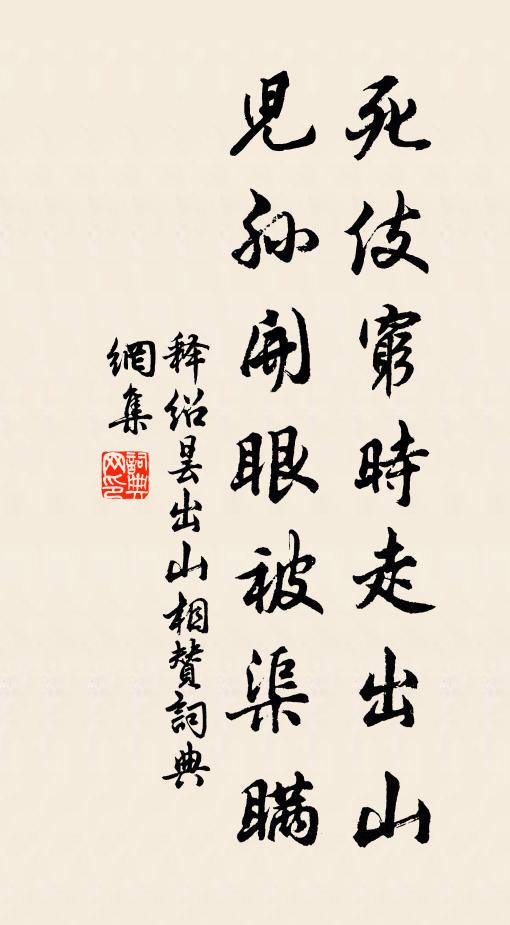 死伎窮時走出山
兒孫開眼被渠瞞
释紹曇出山相贊詞典
網集
詞典網印